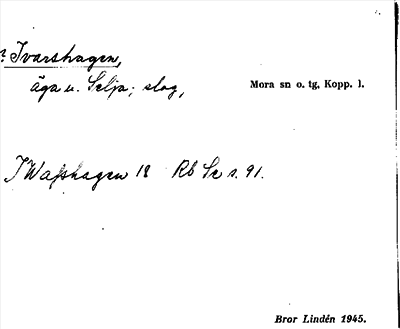 ? Ivarshagen,
äga u. Selja; slog,
Mora sn o. tg, Kopp. l.
I Wafshagen 18 Rb Se s. 91.
Bror Lindén 1945.